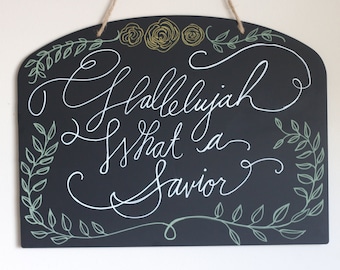 Hallelujah
What a
Savior